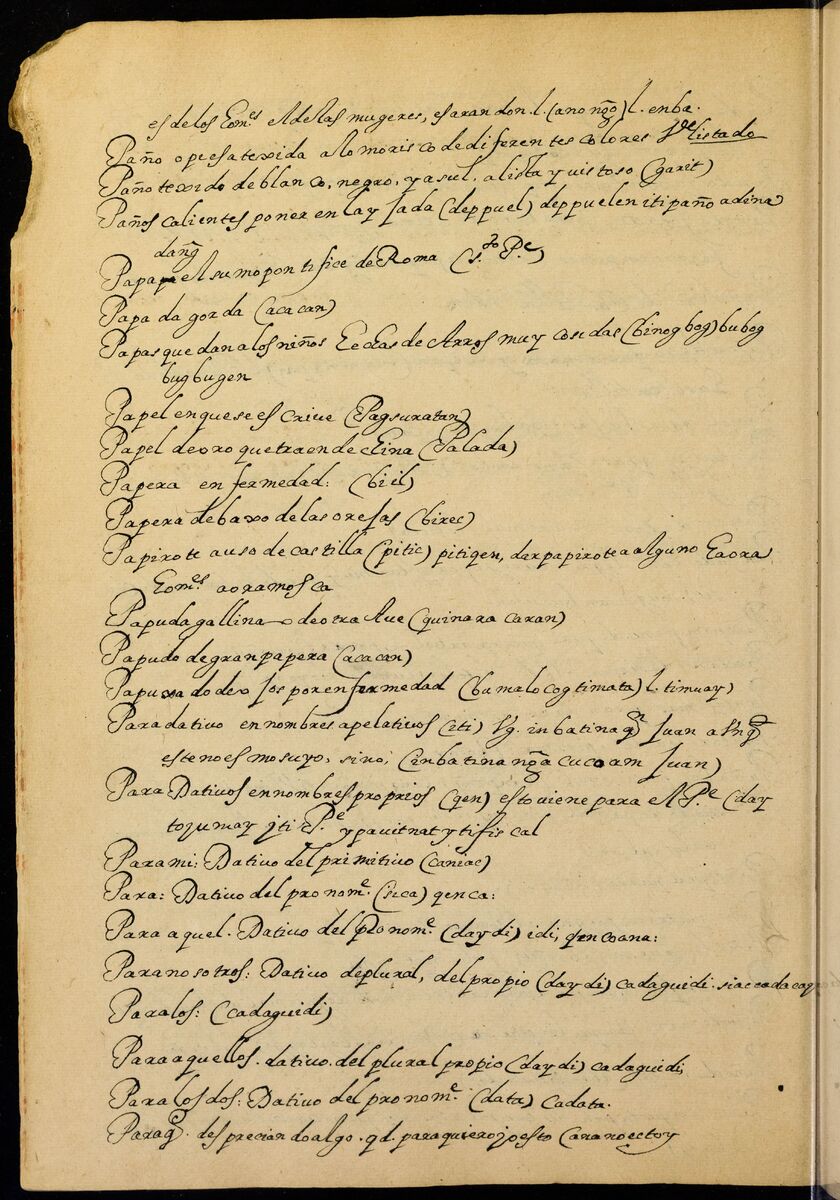 es de los homes el de las mugeres, es arandon. l. (ano nḡo) l. enba.
Paño o piesa texida a lo morisco de diferentes colores Vde listado
Paño texido de blanco, negro, y asul, a lista y uistoso (garit)
Paños calientes poner en la yjada (deppuel) deppuelen iti paño adina
dang̃
Papa el sumo pontifice de Roma (s.to Pe)
Papada gorda (acacan)
Papas que dan a los niños hechas de Arros muy cosidas (binogbog) bubog
bugbugen
Papel en que se escriue (Pagsuratan)
Papel de oro que traen de china (Palada)
Papera enfermedad: (biil)
Papera debaxo de las orejas (birec)
Papirote a uso de castilla (pitic) pitiqen, dar papirote a alguno haora
homes aoramos ca
Papuda gallina o de otra Aue (quinara caran)
Papudo de gran papera (acacan)
Papuxado de ojos por enfermedad (bumalocog ti mata) l. timuay)
Para dativo en nombres apelativos (iti) Vg. inbatinag̃ Juan a
este no es mo suyo, sino, (inbatina ng̃a cucoam Juan)
Para Dativos en nombres proprios (qen) esto viene para el Pe (day
toy umay iti Pe y pauit nat y ti fiscal
Para mi: Dativo del primitiuo (caniac)
Para: Datiuo del pronome. (sica) qenca:
Para aquel. Datiuo del pronome. (daydi) idi, qencoana:
Para nosotros: Datiuo de plural, del propio (daydi) cadaguidi.
Para los: (cadaguidi)
Para aquellos. datiuo. del plural propio (daydi) cadaguidi,
Para los dos: Datiuo del pronome. (data) cadata.
Paraq̃. despreciando algo. qd. para quiero jo esto (anano ectoy